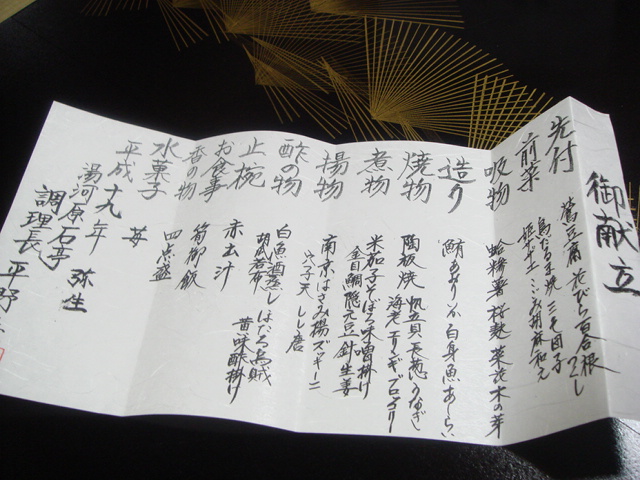 御献立
先付
鶯豆腐 花びら百合根 つくし
前菜
鳥だるま焼 三色団子
胡麻和え
吸物
蛤糝薯 桜麩 菜花 木の芽
造り
鮪 あおりいか 白身魚 あしらい
焼物
陶板焼 帆立貝 長葱 うなぎ
海老 エリンギ ブロッコリー
煮物
米茄子そぼろ味噌掛け
金目鯛 隠元豆 針生姜
揚物
南京はさみ揚 ズッキーニ
穴子天 しし唐
酢の物
白魚酒蒸し ほたる烏賊
胡瓜 若布 黄味酢掛け
止椀
赤出汁
お食事
筍御飯
香の物
四点盛
水菓子
苺
平成十九年 弥生
湯河原石亭
調理長 平野